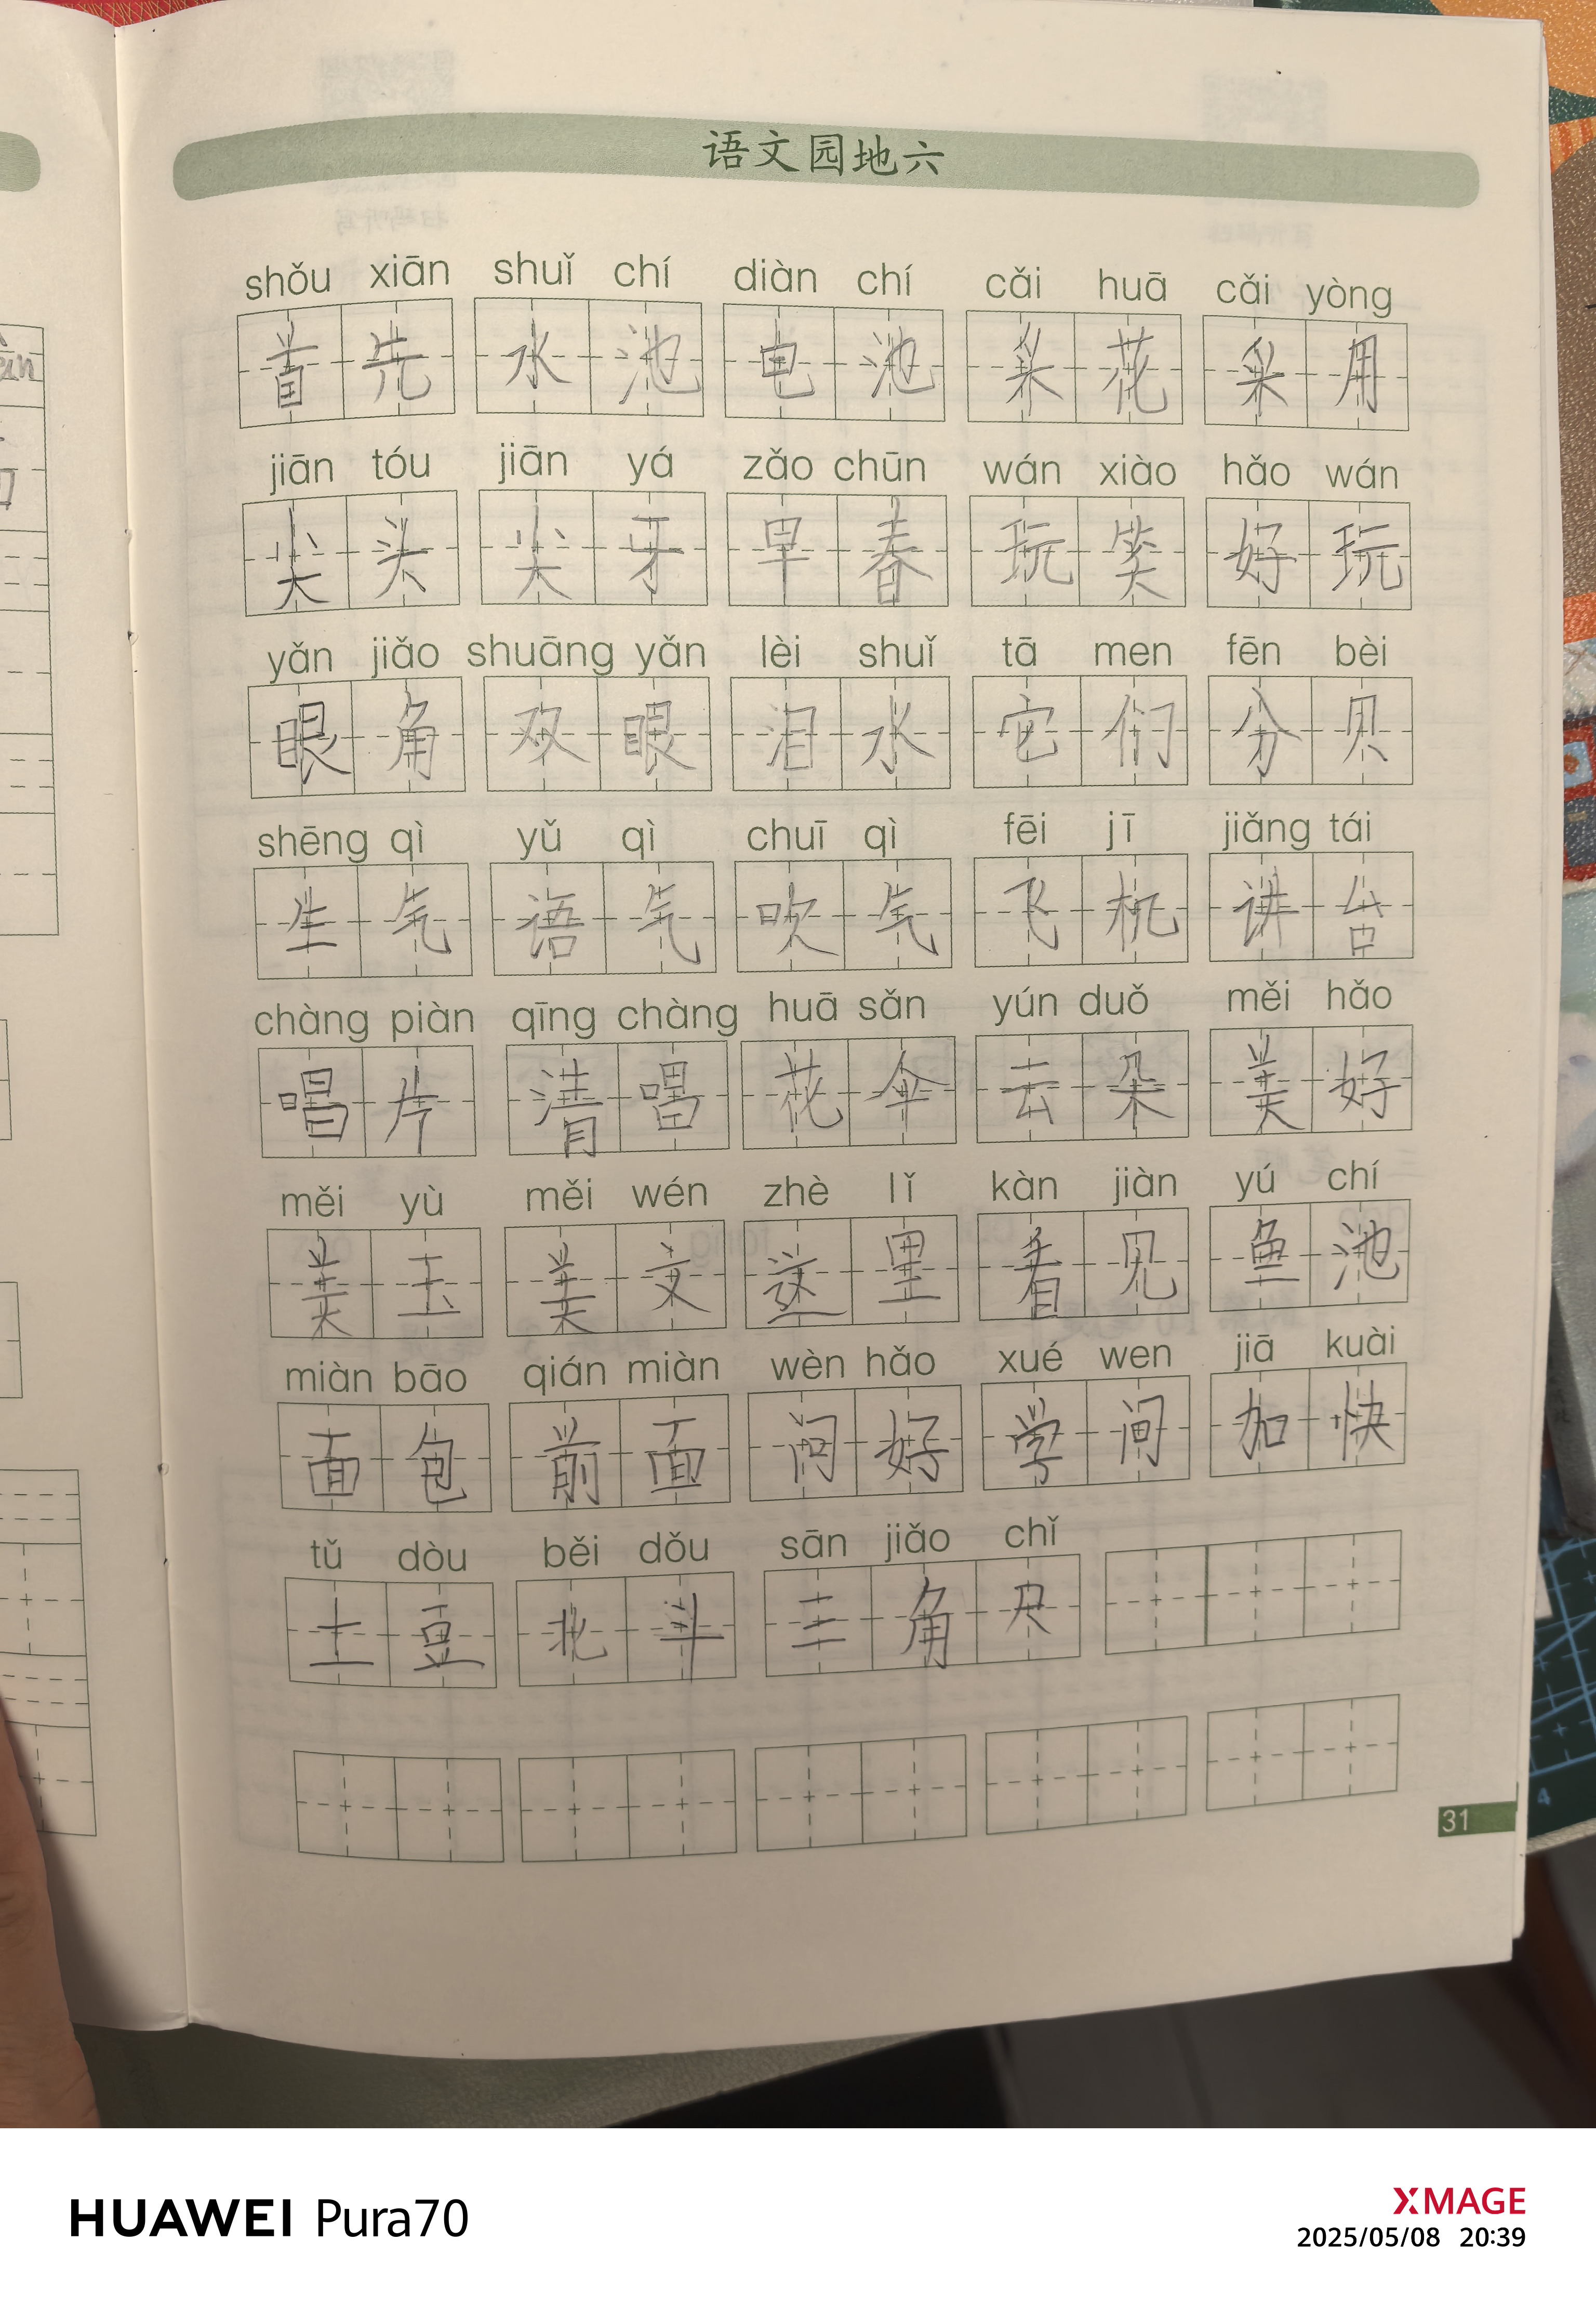 语文园地六
shǒu xiān shuǐ chí diàn chí cǎi huā cǎi yòng
首先 水池 电池 采花 采用
jiān tóu jiān yá zǎo chūn wán xiào hǎo wán
尖头 尖牙 早春 玩笑 好玩
yǎn jiǎo shuāng yǎn lèi shuǐ tā men fēn bèi
眼角 双眼 泪水 它们 分贝
shēng qì yǔ qì chuī qì fēi jī jiǎng tái
生气 语气 吹气 飞机 讲台
chàng piàn qīng chàng huā sǎn yún duǒ měi hǎo
唱片 清唱 花伞 云朵 美好
měi yù měi wén zhè lǐ kàn jiàn yú chí
美玉 美文 这里 看见 鱼池
miàn bāo qián miàn wèn hǎo xué wen jiā kuài
面包 前面 问好 学间 加快
tǔ dòu běi dǒu sān jiǎo chǐ
土豆 北斗 三角尺
31
HUAWEI Pura70
XMAGE
2025/05/08 20:39